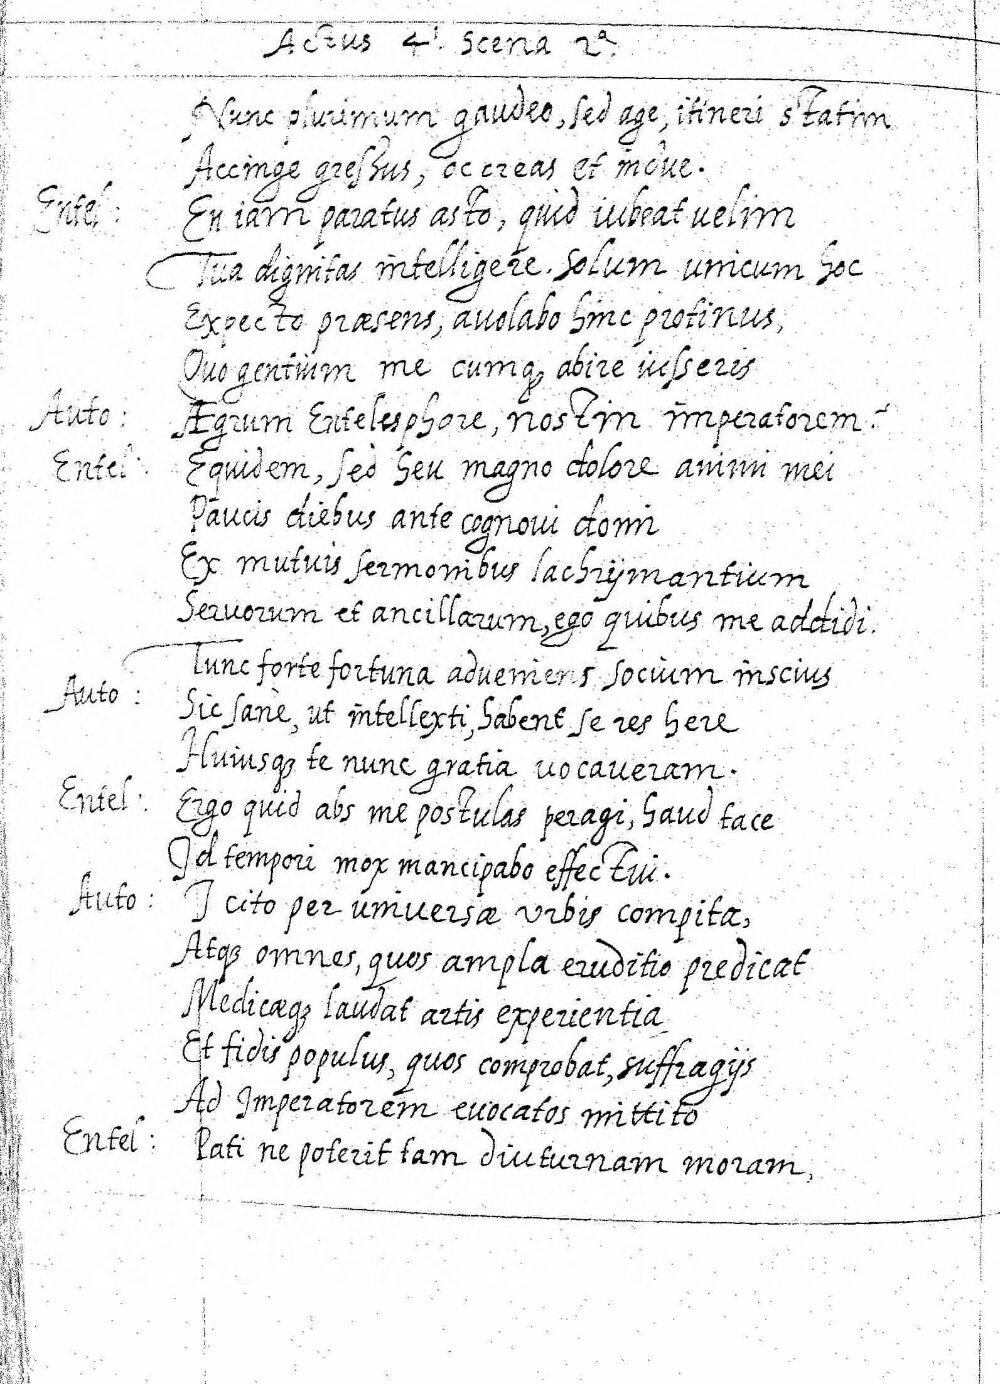 Actus 4ı. scena 2ª.
Nunc plurimum gaudeo, sed age, itineri statim
Accinge gressus, occreas et indue.
Entel: En iam paratus asto, quid iubeat uelim
Tua dignitas intelligere. Solum unicum hoc
Expecto præsens, auolabo hinc protinus,
Quo gentium me cumqȝ abire iusseris
Auto: Ægrum Entelesphore, nostin imperatorem?
Entel: Equidem, sed heu magno dolore animi mei
Paucis diebus ante cognoui domi
Ex mutuis sermonibus lachrijmantium
Seruorum et ancillarum, ego quibus me addidi.
Tunc forte fortuna adueniens socium inscius
Auto: Sic sanè, ut intellexti, habent se res here
Huiusqȝ te nunc gratia uocaueram.
Entel: Ergo quid abs me postulas peragi, haud tace
Id tempori mox mancipabo effectui.
Auto: I cito per uniuersæ vrbis compita,
Atqȝ omnes, quos ampla eruditio predicat
Medicæqȝ laudat artis experientia
Et fidis populus, quos comprobat, suffragijs
Ad Imperatorem euocatos mittito
Entel: Pati ne poterit tam diuturnam moram,